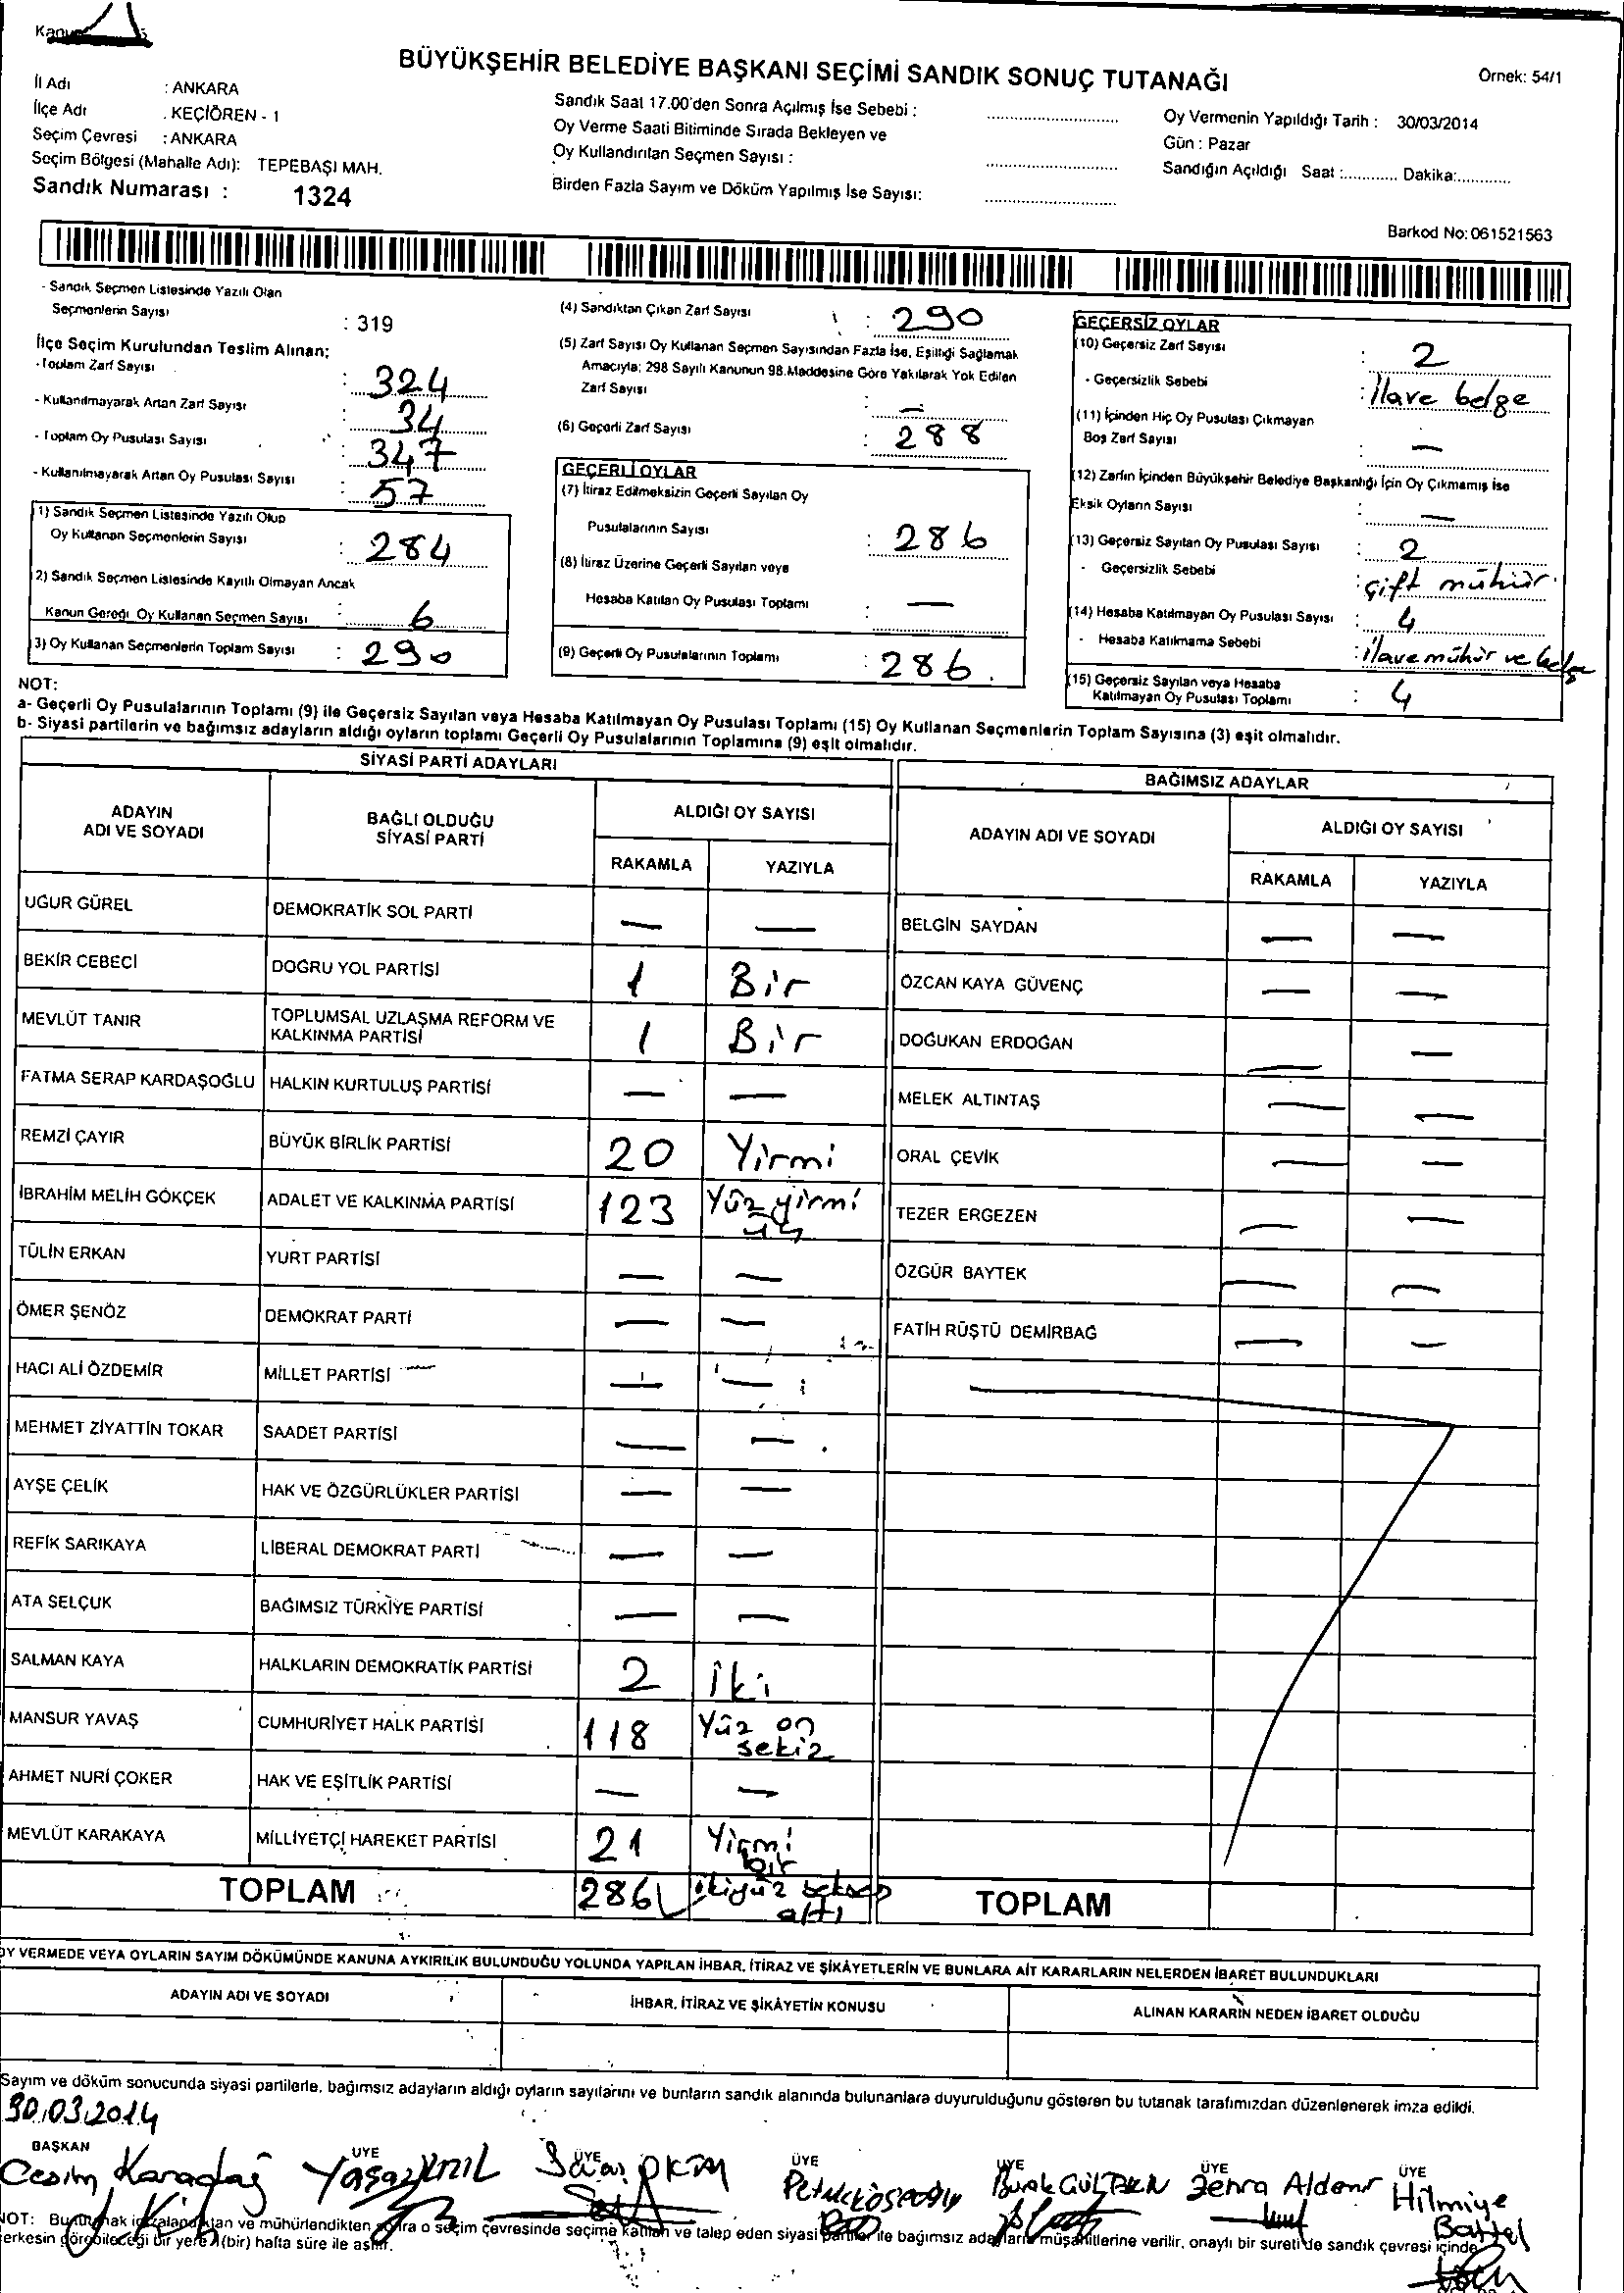 BÜYÜKŞEHİR BELEDİYE BAŞKANI SEÇİMİ SANDIK SONUÇ TUTANAĞI
Örnek: 54/1
İl Adı : ANKARA
İlçe Adı : KEÇİÖREN - 1
Seçim Çevresi : ANKARA
Seçim Bölgesi (Mahalle Adı): TEPEBAŞI MAH.
Sandık Numarası : 1324
Sandık Saat 17.00'den Sonra Açılmış İse Sebebi :
Oy Verme Saati Bitiminde Sırada Bekleyen ve
Oy Kullandırılan Seçmen Sayısı :
Birden Fazla Sayım ve Döküm Yapılmış İse Sayısı:
Oy Vermenin Yapıldığı Tarih : 30/03/2014
Gün : Pazar
Sandığın Açıldığı Saat :............ Dakika:...........
Barkod No: 061521563
- Sandık Seçmen Listesinde Yazılı Olan
Seçmenlerin Sayısı : 319
İlçe Seçim Kurulundan Teslim Alınan;
- Toplam Zarf Sayısı : 324
- Kullanılmayarak Artan Zarf Sayısı : 34
- Toplam Oy Pusulası Sayısı : 347
- Kullanılmayarak Artan Oy Pusulası Sayısı : 57
1) Sandık Seçmen Listesinde Yazılı Olup
Oy Kullanan Seçmenlerin Sayısı : 284
2) Sandık Seçmen Listesinde Kayıtlı Olmayan Ancak
Kanun Gereği Oy Kullanan Seçmen Sayısı : 6
3) Oy Kullanan Seçmenlerin Toplam Sayısı : 290
(4) Sandıktan Çıkan Zarf Sayısı : 290
(5) Zarf Sayısı Oy Kullanan Seçmen Sayısından Fazla İse, Eşitliği Sağlamak
Amacıyla; 298 Sayılı Kanunun 98.Maddesine Göre Yakılarak Yok Edilen
Zarf Sayısı : —
(6) Geçerli Zarf Sayısı : 288
GEÇERLİ OYLAR
(7) İtiraz Edilmeksizin Geçerli Sayılan Oy
Pusulalarının Sayısı : 286
(8) İtiraz Üzerine Geçerli Sayılan veya
Hesaba Katılan Oy Pusulası Toplamı : —
(9) Geçerli Oy Pusulalarının Toplamı : 286
GEÇERSİZ OYLAR
(10) Geçersiz Zarf Sayısı : 2
- Geçersizlik Sebebi : ilave belge
(11) İçinden Hiç Oy Pusulası Çıkmayan
Boş Zarf Sayısı : —
(12) Zarfın İçinden Büyükşehir Belediye Başkanlığı İçin Oy Çıkmamış İse
Eksik Oyların Sayısı : —
(13) Geçersiz Sayılan Oy Pusulası Sayısı : 2
- Geçersizlik Sebebi : çift mühür
(14) Hesaba Katılmayan Oy Pusulası Sayısı : 4
- Hesaba Katılmama Sebebi : ilave mühür ve belge
(15) Geçersiz Sayılan veya Hesaba
Katılmayan Oy Pusulası Toplamı : 4
NOT:
a- Geçerli Oy Pusulalarının Toplamı (9) ile Geçersiz Sayılan veya Hesaba Katılmayan Oy Pusulası Toplamı (15) Oy Kullanan Seçmenlerin Toplam Sayısına (3) eşit olmalıdır.
b- Siyasi partilerin ve bağımsız adayların aldığı oyların toplamı Geçerli Oy Pusulalarının Toplamına (9) eşit olmalıdır.
SİYASİ PARTİ ADAYLARI
ADAYIN ADI VE SOYADI
BAĞLI OLDUĞU SİYASİ PARTİ
ALDIĞI OY SAYISI
RAKAMLA YAZIYLA
UĞUR GÜREL DEMOKRATİK SOL PARTİ — —
BEKİR CEBECİ DOĞRU YOL PARTİSİ 1 Bir
MEVLÜT TANIR TOPLUMSAL UZLAŞMA REFORM VE KALKINMA PARTİSİ 1 Bir
FATMA SERAP KARDAŞOĞLU HALKIN KURTULUŞ PARTİSİ — —
REMZİ ÇAYIR BÜYÜK BİRLİK PARTİSİ 20 Yirmi
İBRAHİM MELİH GÖKÇEK ADALET VE KALKINMA PARTİSİ 123 Yüz yirmi üç
TÜLİN ERKAN YURT PARTİSİ — —
ÖMER ŞENÖZ DEMOKRAT PARTİ — —
HACI ALİ ÖZDEMİR MİLLET PARTİSİ — —
MEHMET ZİYATTİN TOKAR SAADET PARTİSİ — —
AYŞE ÇELİK HAK VE ÖZGÜRLÜKLER PARTİSİ — —
REFİK SARIKAYA LİBERAL DEMOKRAT PARTİ — —
ATA SELÇUK BAĞIMSIZ TÜRKİYE PARTİSİ — —
SALMAN KAYA HALKLARIN DEMOKRATİK PARTİSİ 2 İki
MANSUR YAVAŞ CUMHURİYET HALK PARTİSİ 118 Yüz on sekiz
AHMET NURİ ÇOKER HAK VE EŞİTLİK PARTİSİ — —
MEVLÜT KARAKAYA MİLLİYETÇİ HAREKET PARTİSİ 21 Yirmi bir
TOPLAM 286 ikiyüz seksen altı
BAĞIMSIZ ADAYLAR
ADAYIN ADI VE SOYADI
ALDIĞI OY SAYISI
RAKAMLA YAZIYLA
BELGİN SAYDAN — —
ÖZCAN KAYA GÜVENÇ — —
DOĞUKAN ERDOĞAN — —
MELEK ALTINTAŞ — —
ORAL ÇEVİK — —
TEZER ERGEZEN — —
ÖZGÜR BAYTEK — —
FATİH RÜŞTÜ DEMİRBAĞ — —
TOPLAM
OY VERMEDE VEYA OYLARIN SAYIM DÖKÜMÜNDE KANUNA AYKIRILIK BULUNDUĞU YOLUNDA YAPILAN İHBAR, İTİRAZ VE ŞİKAYETLERİN VE BUNLARA AİT KARARLARIN NELERDEN İBARET BULUNDUKLARI
ADAYIN ADI VE SOYADI
İHBAR, İTİRAZ VE ŞİKÂYETİN KONUSU
ALINAN KARARIN NEDEN İBARET OLDUĞU
Sayım ve döküm sonucunda siyasi partilerle, bağımsız adayların aldığı oyların sayılarını ve bunların sandık alanında bulunanlara duyurulduğunu gösteren bu tutanak tarafımızdan düzenlenerek imza edildi.
30.03.2014
BAŞKAN ÜYE ÜYE ÜYE ÜYE ÜYE ÜYE
Cesim Karadağ Yaşar Zehra Hilmiye
NOT: Bu tutanak imzalandıktan ve mühürlendikten sonra o seçim çevresinde seçime katılan ve talep eden siyasi partiler ile bağımsız adayların müşahitlerine verilir, onaylı bir sureti de sandık çevresi içinde
herkesin görebileceği bir yere 1(bir) hafta süre ile asılır.